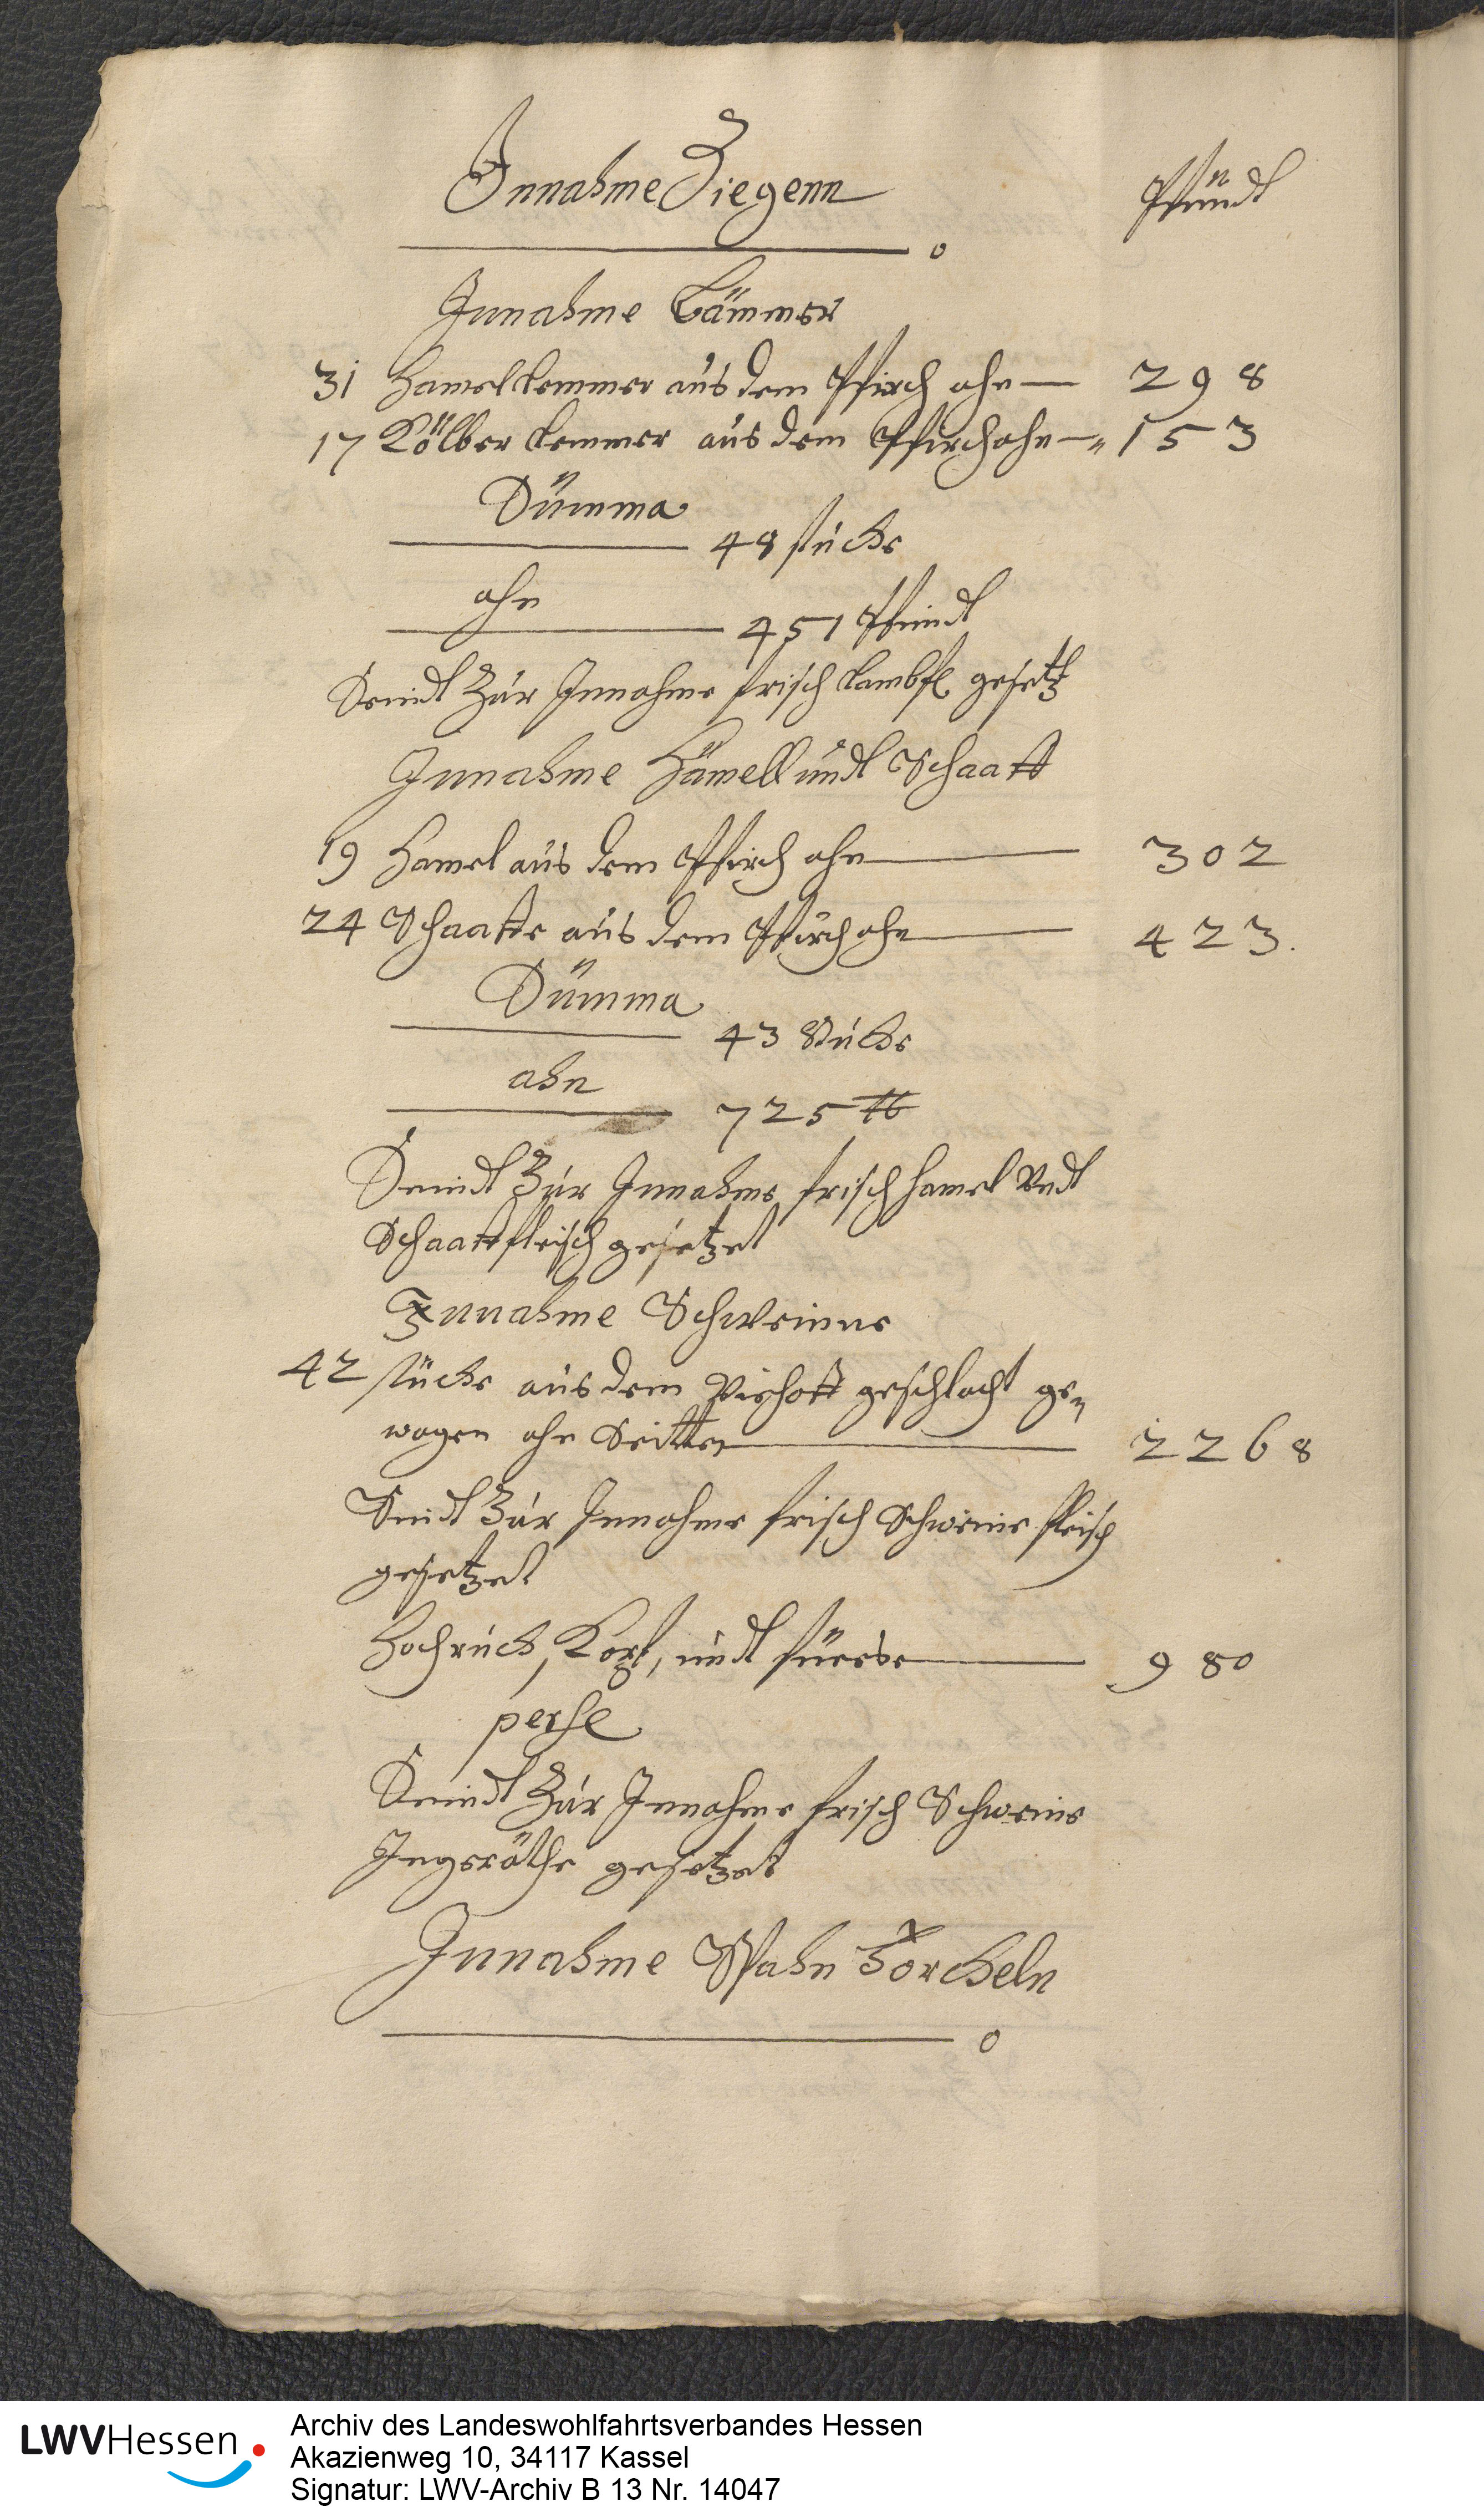 Innahme Ziegenn
Pfundt
0
Innahme Lämmer
31 Hamel Lemmer aus dem Pfirch ahn — 298
17 Kölber Lemmer aus dem Pfirch ahn — 153
Summa
48 stucke
ahn
451 Pfundt
Seindt Zur Innahme frisch Lambfl gesetz
Innahme Hämell undt Schaaff
19 Hamel aus dem Pfirch ahn 302
24 Schaaffe aus dem Pfirch ahn 423.
Summa
43 Stucke
ahn
725 ℔
Seindt Zur Innahme frisch Hamel Vndt
Schaaffleisch gesetzet
Innahme Schweinne
42 stucke aus dem Viehoff geschlacht ge„
wogen ahn Seitten 2268
Seindt Zur Innahme frisch Schweine fleisch
gesetzet
Hochruck, Kopf, undt fuesse 980
per se
Seindt Zur Innahme frisch Schweine
Ingeröthe gesetzet
Innahme Spahn Förckeln
0
LWVHessen
Archiv des Landeswohlfahrtsverbandes Hessen
Akazienweg 10, 34117 Kassel
Signatur: LWV-Archiv B 13 Nr. 14047